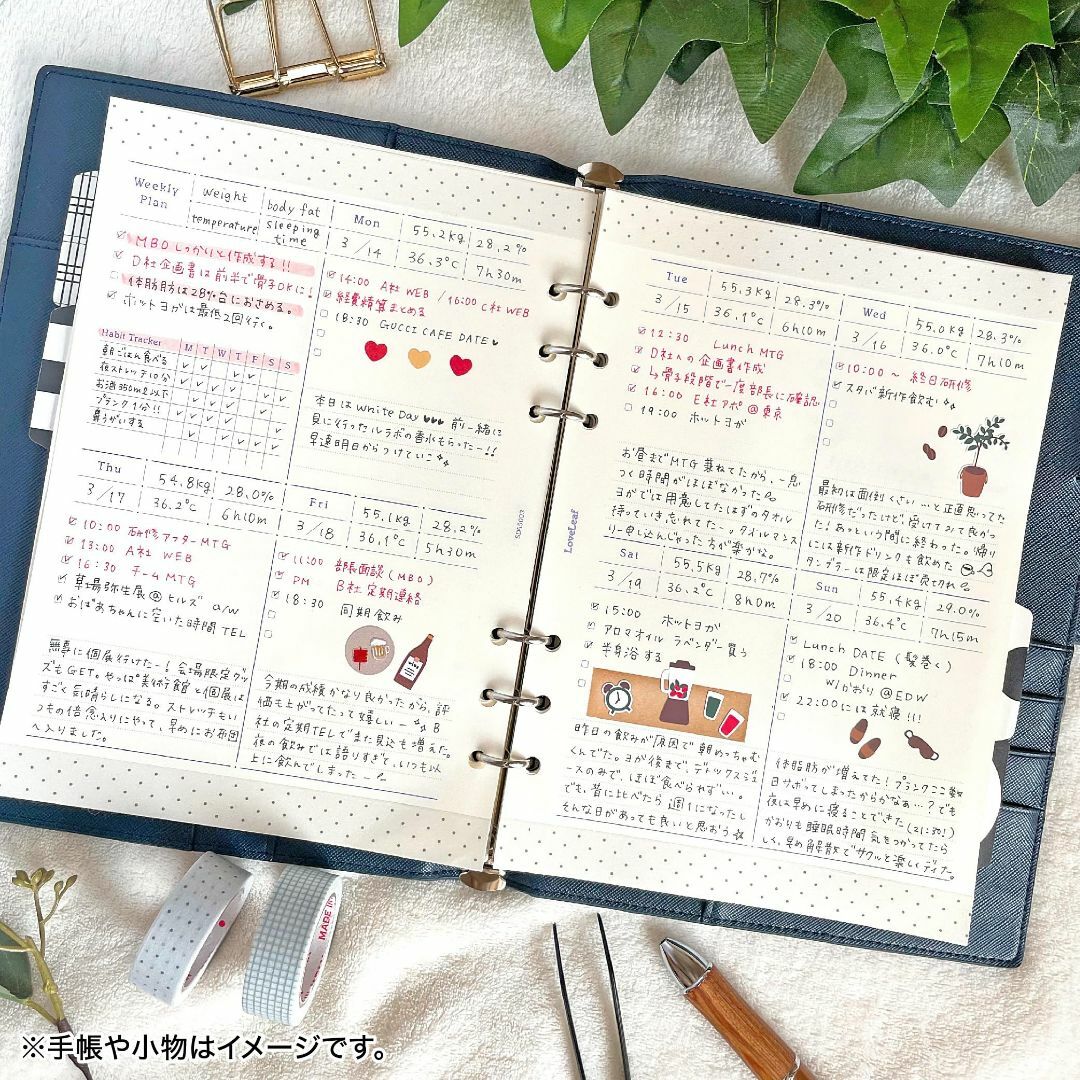 Weekly Plan
weight
body fat
temperature
sleeping time
MBOしっかりと作成する!!
D社企画書は前半で骨子OKに!
体脂肪は28%台におさめる。
ホットヨガは最低2回行く。
Habit Tracker M T W T F S S
朝ごはん食べる
夜ストレッチ10分
お酒350ml以下
プランク1分!!
鼻うがいする
Mon 55.2kg 28.2%
3/14 36.3℃ 7h30m
14:00 A社 WEB / 16:00 C社 WEB
経費精算まとめる
18:30 GUCCI CAFE DATE♥
本日は White Day ♥♥♥ 前一緒に
見に行ったルラボの香水もらったー!!
早速明日からつけていこ
Thu 54.8kg 28.0%
3/17 36.2℃ 6h10m
10:00 研修アフターMTG
13:00 A社 WEB
16:30 チームMTG
草場弥生展@ヒルズ a/w
おばあちゃんに空いた時間TEL
無事に個展行けたー! 会場限定グッ
ズもGET。やっぱ美術館と個展は
すごく気晴らしになる。ストレッチもい
つもの倍念入りにやって、早めにお布団
へ入りました。
Fri 55.1kg 28.2%
3/18 36.1℃ 5h30m
11:00 部長面談(MBO)
PM B社定期連絡
18:30 同期飲み
今期の成績かなり良かったから、評
価も上がってたって嬉しいー B
社の定期TELでまた見込も増えた。
夜の飲みでは語りすぎて、いつも以
上に飲んでしまったー
SDS5003
LoveLeaf
Tue 55.3kg 28.3%
3/15 36.1℃ 6h10m
12:30 Lunch MTG
D社への企画書作成
↳骨子段階で一度部長に確認
16:00 E社アポ@東京
19:00 ホットヨガ
お昼までMTG兼ねてたから、一息
つく時間がほぼなかった
ヨガでは用意してたはずのタオル
持っていき忘れてたー。タイルマンス
リー申し込んじゃった方が楽かな。
Wed 55.0kg 28.3%
3/16 36.0℃ 7h10m
10:00～ 終日研修
スタバ新作飲む
最初は面倒くさい…と正直思ってた
研修だったけど、受けてみて良かっ
た! あっという間に終わった。帰り
には新作ドリンクも飲めた
タンブラーは限定ほぼ売てくれ
Sat 55.5kg 28.7%
3/19 36.2℃ 8h0m
15:00 ホットヨガ
アロマオイル ラベンダー買う
半身浴する
昨日の飲みが原因で朝めっちゃむ
くんでた。ヨガ後まで、デトックスジュ
ースのみで、ほぼ食べられず…。
でも、昔に比べたら週1になったし
そんな日があっても良いと思おう☆
Sun 55.4kg 29.0%
3/20 36.4℃ 7h15m
Lunch DATE (髪巻く)
18:00 Dinner
w/かおり @EDW
22:00には就寝!!!
体脂肪が増えてた! プランクここ数
日サボってしまったからかなぁ…? でも
夜は早めに寝ることできた(21:30!)
かおりも睡眠時間気をつかってたら
しく、早め解散でサクッと楽しくディナー。
MADE IN
※手帳や小物はイメージです。